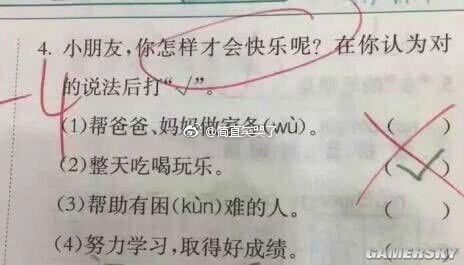 4. 小朋友,你怎样才会快乐呢?在你认为对
的说法后打“√”。
-4
(1)帮爸爸、妈妈做家务(wù)。 ( )
(2)整天吃喝玩乐。 (✓)
(3)帮助有困(kùn)难的人。 ( )
(4)努力学习,取得好成绩。
GAMERSKY